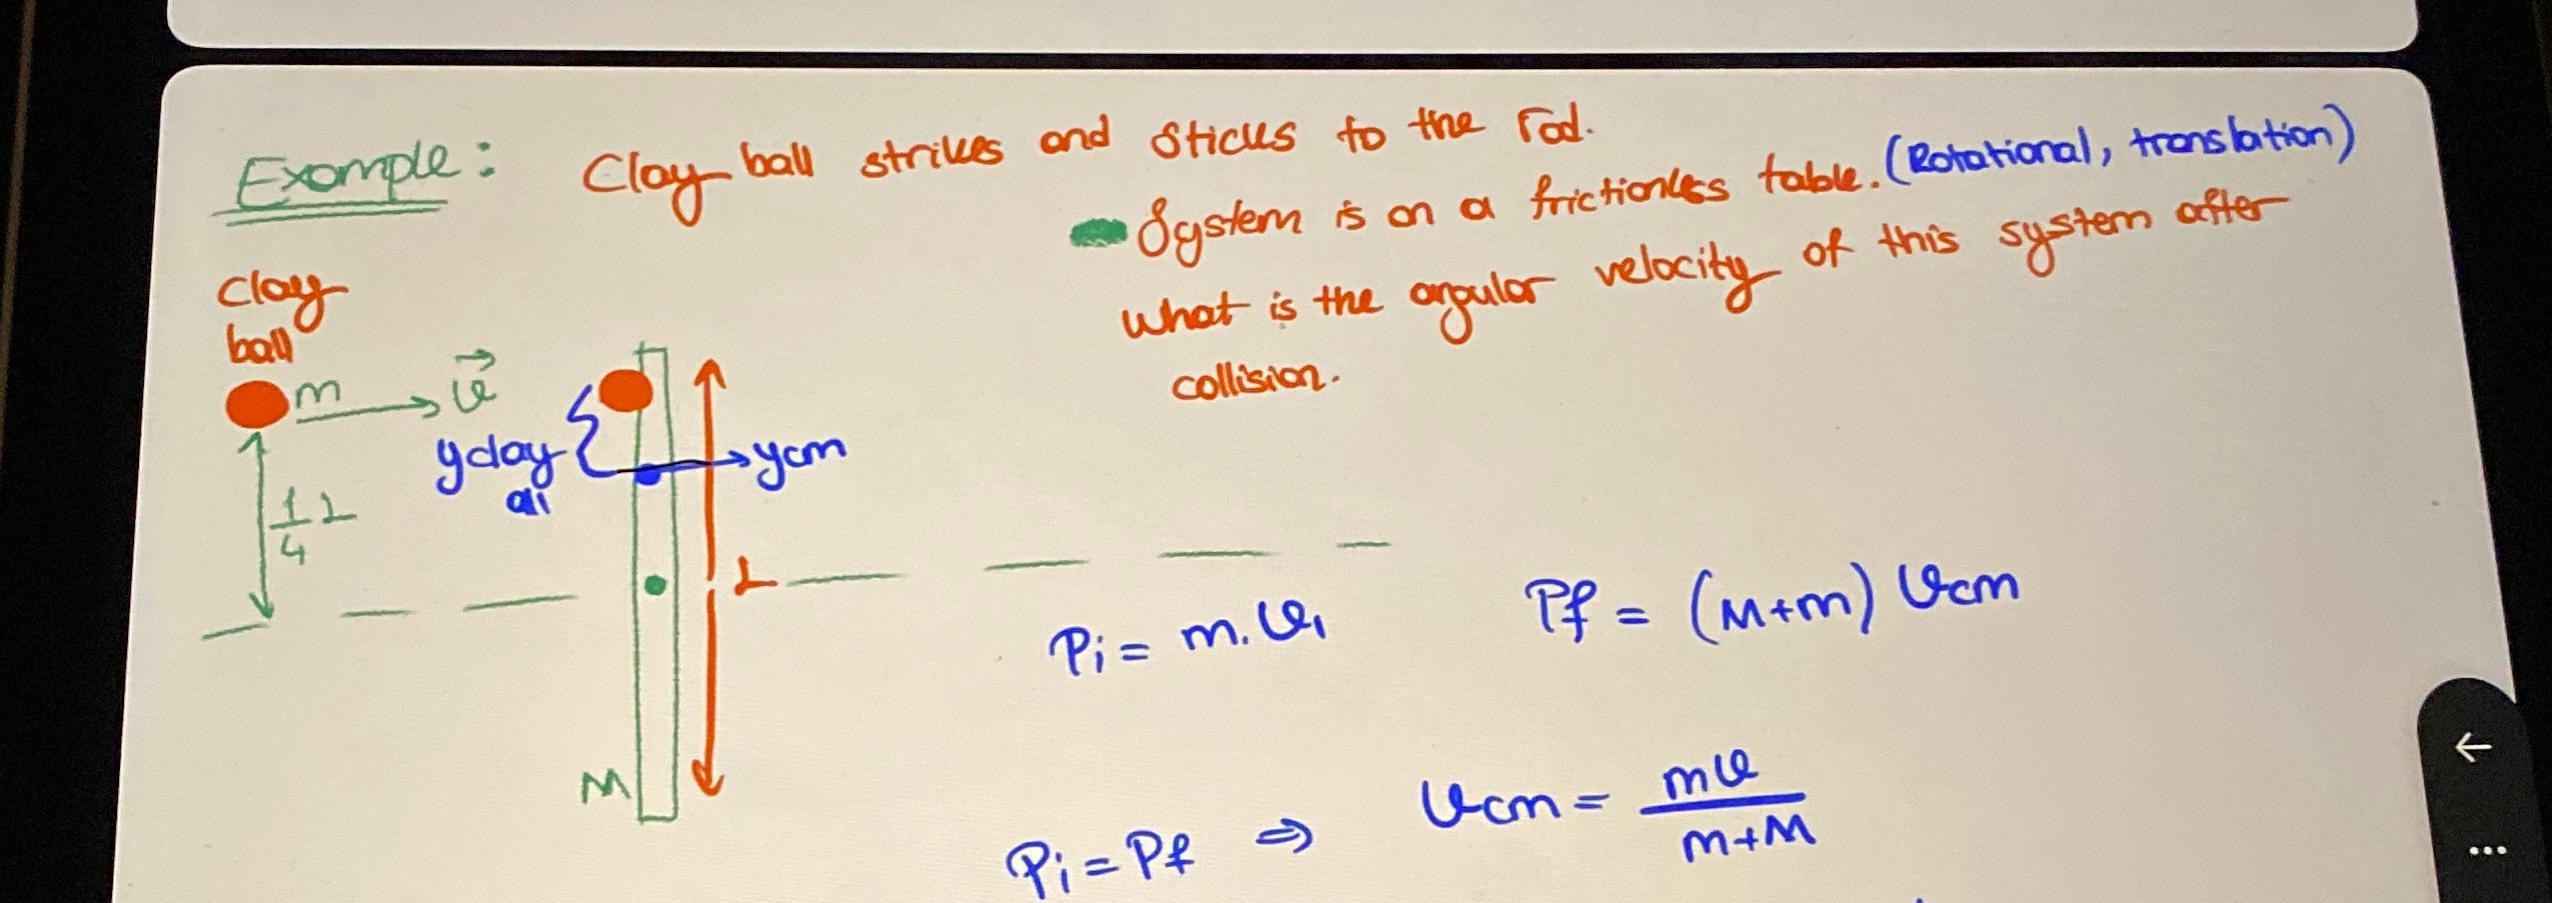 Example: Clay ball strikes and sticks to the rod.
System is on a frictionless table. (Rotational, translation)
What is the angular velocity of this system after
collision.
Clay
ball
m v⃗
yclay
ycm
1/4 L
L
M
Pi = m.v₁ Pf = (M+m) vcm
Pi = Pf ⇒ vcm = mv / m+M